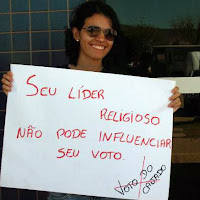 SEU LÍDER
RELIGIOSO
NÃO PODE INFLUENCIAR
SEU VOTO.
VOTO DO
CAJADO